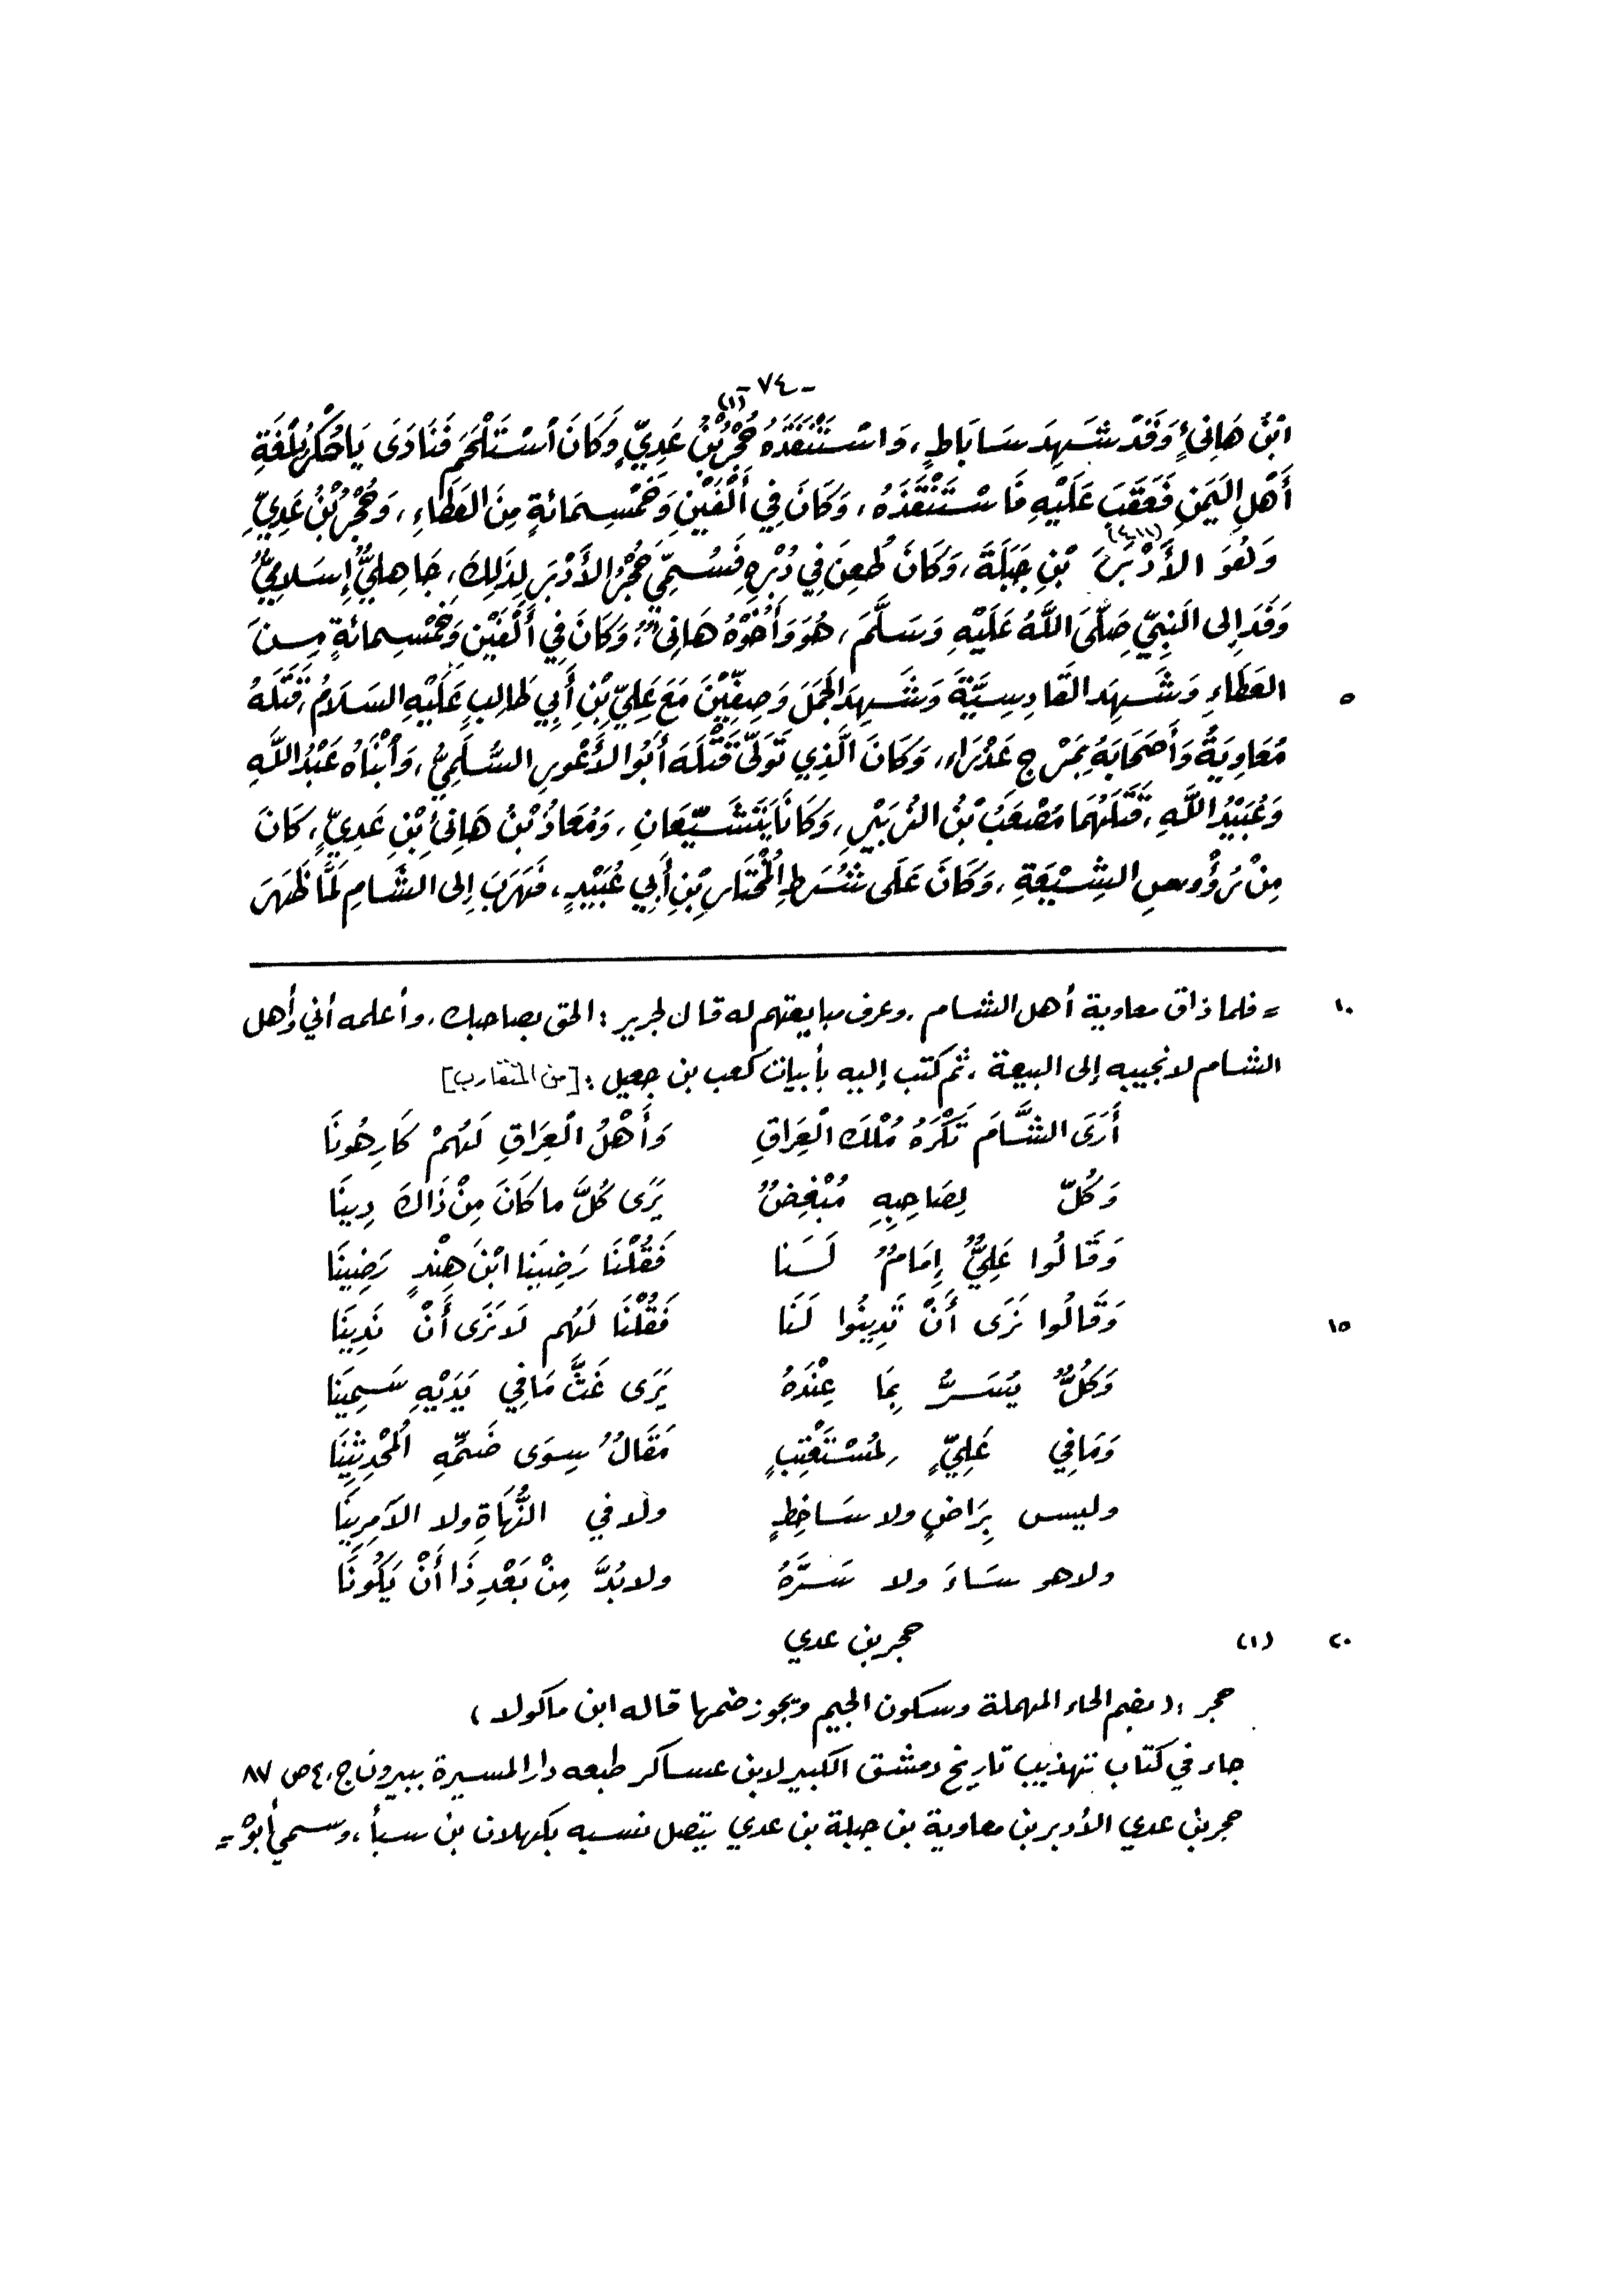 - ٧٤ -
ابْنُ هَانِئٍ وَقَدْ شَهِدَ سَابَاطَ، وَاسْتَنْقَذَهُ حُجْرُ بْنُ عَدِيٍّ(١) وَكَانَ اسْتَلْحَمَ فَنَادَى يَا حُكْرُ بِلُغَةِ
أَهْلِ اليَمَنِ فَعَقَبَ عَلَيْهِ فَاسْتَنْقَذَهُ، وَكَانَ فِي أَلْفَيْنِ وَخَمْسِمَائةٍ مِنَ العَطَاءِ، وَحُجْرُ بْنُ عَدِيِّ
وَهُوَ الأَدْبَرَ بْنِ جَبَلَةَ، وَكَانَ طُعِنَ فِي دُبْرِهِ فَسُمِّيَ حُجْرُ الأَدْبَرِ لِذَلِكَ، جَاهِلِيٌّ إِسَلامِيٌّ
وَفَدَ إِلى النَبِيِّ صَلَّى اللَّهُ عَلَيْهِ وَسَلَّمَ، هُوَ وَأَخُوْهُ هَانِئٌ، وَكَانَ فِي أَلْفَيْنِ وَخَمْسِمائةٍ مِنَ
٥ العَطَاءِ وَشَهِدَ القَادِسِيَّةَ وَشَهِدَ الجَمَلَ وَصِفِّيْنَ مَعَ عَلِيِّ بْنِ أَبِي طَالِبٍ عَلَيْهِ السَلَامُ، قَتَلَهُ
مُعَاوِيَةُ وَأَصْحَابَهُ بِمَرْجِ عَذْرَاءِ، وَكَانَ الَّذِي تَوَلَّى قَتْلَهَ أَبُو الأَعْوَرِ السُّلَمِيُّ، وَابْنَاهُ عَبْدُ اللَّهِ
وَعُبَيْدُ اللَّهِ، قَتَلَهُمَا مُصْعَبُ بْنُ الزُبَيْرِ، وَكَانَا يَتَشَيَّعَانِ، وَمُعَاذُ بْنُ هَانِئِ بْنِ عَدِيٍّ، كَانَ
مِنْ رُؤُوسِ الشِيْعَةِ، وَكَانَ عَلَى شُرَطِ المُخْتَارِ بْنِ أَبِي عُبَيْدٍ، فَهَرَبَ إِلى الشَامِ لَمَّا ظَهَرَ
١٠ = فلما ذاق معاوية أهل الشام، وعرف مبايعتهم له قال لجرير : الحق بصاحبك، وأعلمه أني وأهل
الشام لا نجيبه إلى البيعة، ثم كتب إليه بأبيات كعب بن جعيل : [من المتقارب]
أَرَى الشَّامَ تَكْرَهُ مُلْكَ الْعِرَاقِ وَأَهْلُ الْعِرَاقِ لَهُمْ كَارِهُونَا
وَكُلّ لِصَاحِبِهِ مُبْغِضٌ يَرَى كُلَّ ما كَانَ مِنْ ذَاكَ دِينَا
وَقَالُوا عَلِيٌّ إِمَامٌ لَنَا فَقُلْنَا رَضِينَا ابْنَ هِنْدٍ رَضِينَا
١٥ وَقَالُوا نَرَى أَنْ تَدِينُوا لَنَا فَقُلْنَا لَهُم لَا نَرَى أَنْ نَدِينَا
وَكُلٌّ يُسَرُّ بِمَا عِنْدَهُ يَرَى غَثَّ مَا فِي يَدَيْهِ سَمِينَا
وَمَا فِي عَلِيٍّ لِمُسْتَعْتِبٍ مَقَالٌ سِوَى ضَمِّهِ المُحْدِثِينَا
وليس بِرَاضٍ ولا سَاخِطٍ ولا في النُّهَاةِ ولا الآمِرِينَا
ولا هو سَاءَ ولا سَرَّهُ ولا بُدَّ مِنْ بَعْدِ ذَا أَنْ يَكُونَا
٢٠ (١) حجر بن عدي
حجر : (بضم الحاء المهملة وسكون الجيم ويجوز ضمها قاله ابن ماكولا)
جاء في كتاب تهذيب تاريخ دمشق الكبير لابن عساكر طبعه دار المسيرة ببيروت ج، ٤ ص ٨٧
حجر بن عدي الأدبر بن معاوية بن جبلة بن عدي يتصل نسبه بكهلان بن سبأ، وسمي أبوْ =